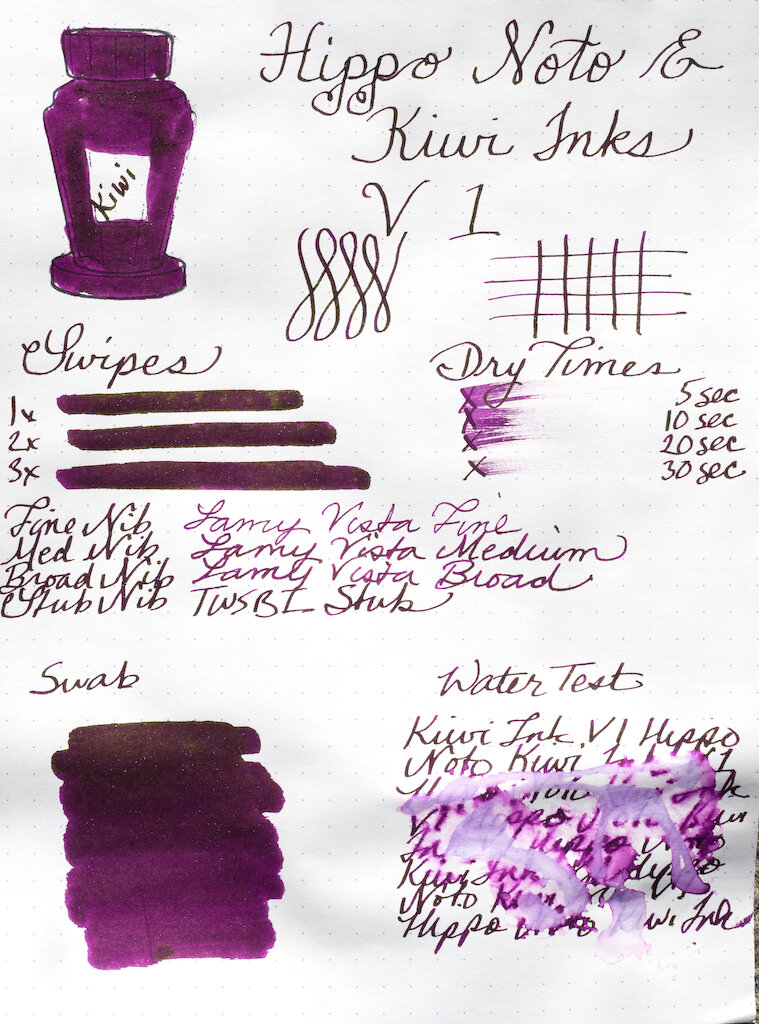 Hippo Noto &
Kiwi Inks
V 1
Kiwi
Swipes
1x
2x
3x
Dry Times
x 5 sec
x 10 sec
x 20 sec
x 30 sec
Fine Nib Lamy Vista Fine
Med Nib Lamy Vista Medium
Broad Nib Lamy Vista Broad
Stub Nib TWSBI Stub
Swab
Water Test
Kiwi Ink V1 Hippo
Noto Kiwi Ink V1
Ink
V1 Hippo Noto Kiwi
Hippo Noto
Kiwi Ink Hippo
Noto Kiwi
Hippo Noto Kiwi Ink